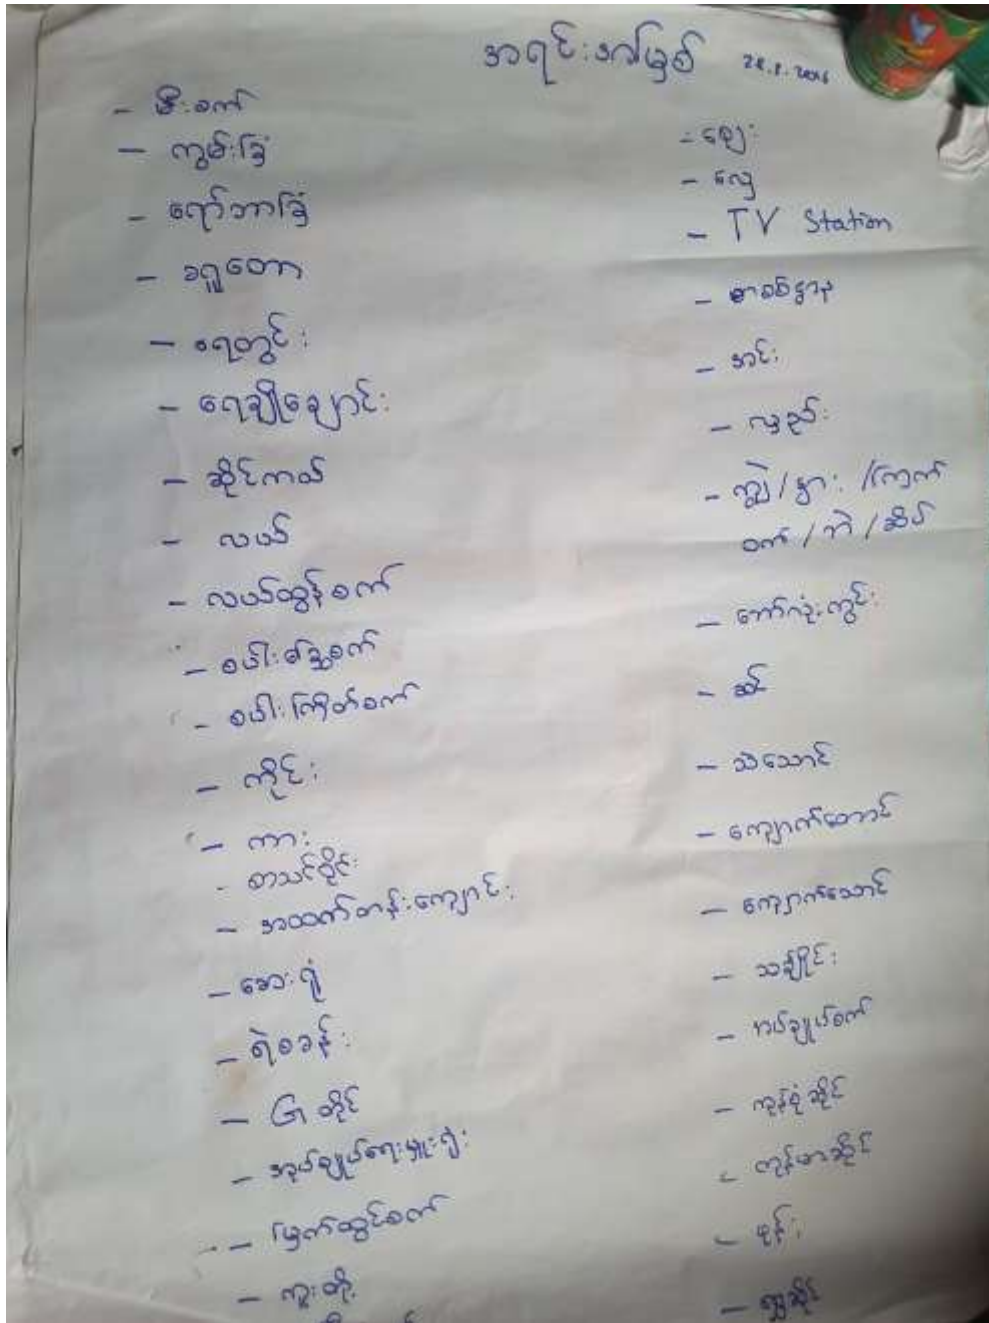 အရင်းအမြစ် 28.8.2016
- မီးစက်
- ကွမ်းခြံ
- ရော်ဘာခြံ
- ရေတွင်း
- ရေချိုချောင်း
- ဆိုင်ကယ်
- လယ်
- လယ်ထွန်စက်
- စပါးခြွေစက်
- စပါးကြိတ်စက်
- ကိုင်း
- ကား
- စာသင်ဝိုင်း
- အထက်တန်းကျောင်း
- ဆေးရုံ
- ရဲစခန်း
- G တိုင်
- အုပ်ချုပ်ရေးမှူးရုံး
- မြက်ထွင်စက်
- ကူးတို့
- ဈေး
- လှေ
- TV Station
- အင်း
- လှည်း
- ကျွဲ/နွား/ကြက်
ဝက်/ဘဲ/ဆိတ်
- ဘော်လုံးကွင်း
- ဆင်
- သဲသောင်
- ကျောက်တောင်
- ကျောက်သောင်
- သချႋုင်း
- အပ်ချုပ်စက်
- ကုန်စုံဆိုင်
- ကွန်မာဆိုင်
- ဖုန်း
- ရွှေဆိုင်